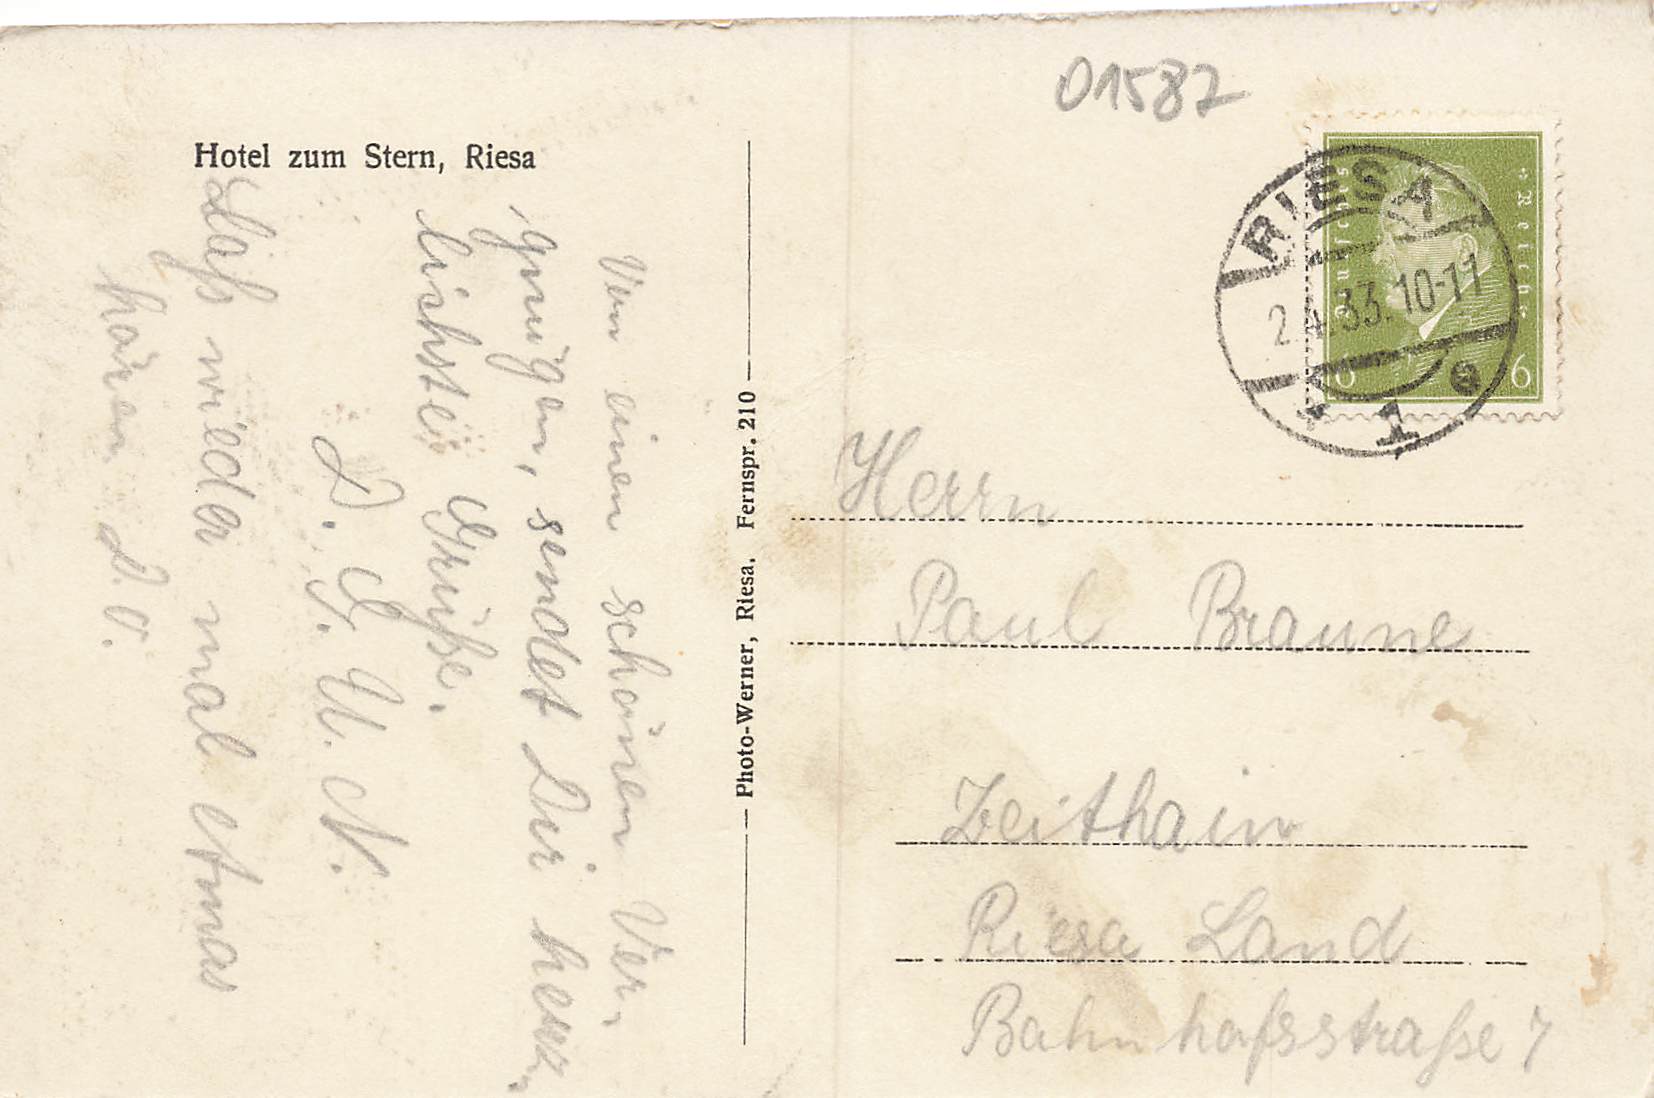 Hotel zum Stern, Riesa
Von einen schönen Ver-
gnügen, sendet Dir herz-
lichste Grüße.
D. G. U. N.
Laß wieder mal etwas
hören d. O.
Photo-Werner, Riesa. Fernspr. 210
01587
Deutsches Reich
6 6
RIESA
2.4.33.10-11
* 1 e
Herrn
Paul Braune
Zeithain
Riesa Land
Bahnhofsstraße 7